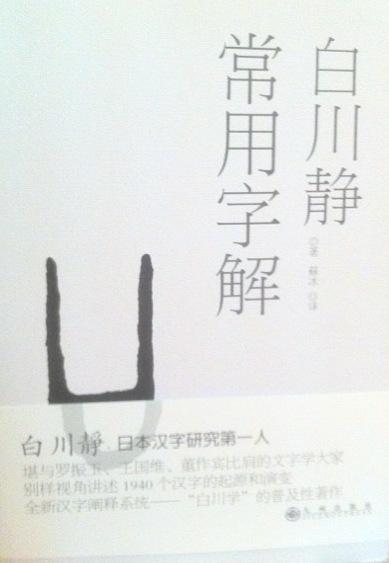 白川静
◎著 蘇冰 ◎译
常用字解
白川静、日本汉字研究第一人
堪与罗振玉、王国维、董作宾比肩的文字学大家
别样视角讲述1940个汉字的起源和演变
全新汉字阐释系统——“白川学”的普及性著作
九州出版社